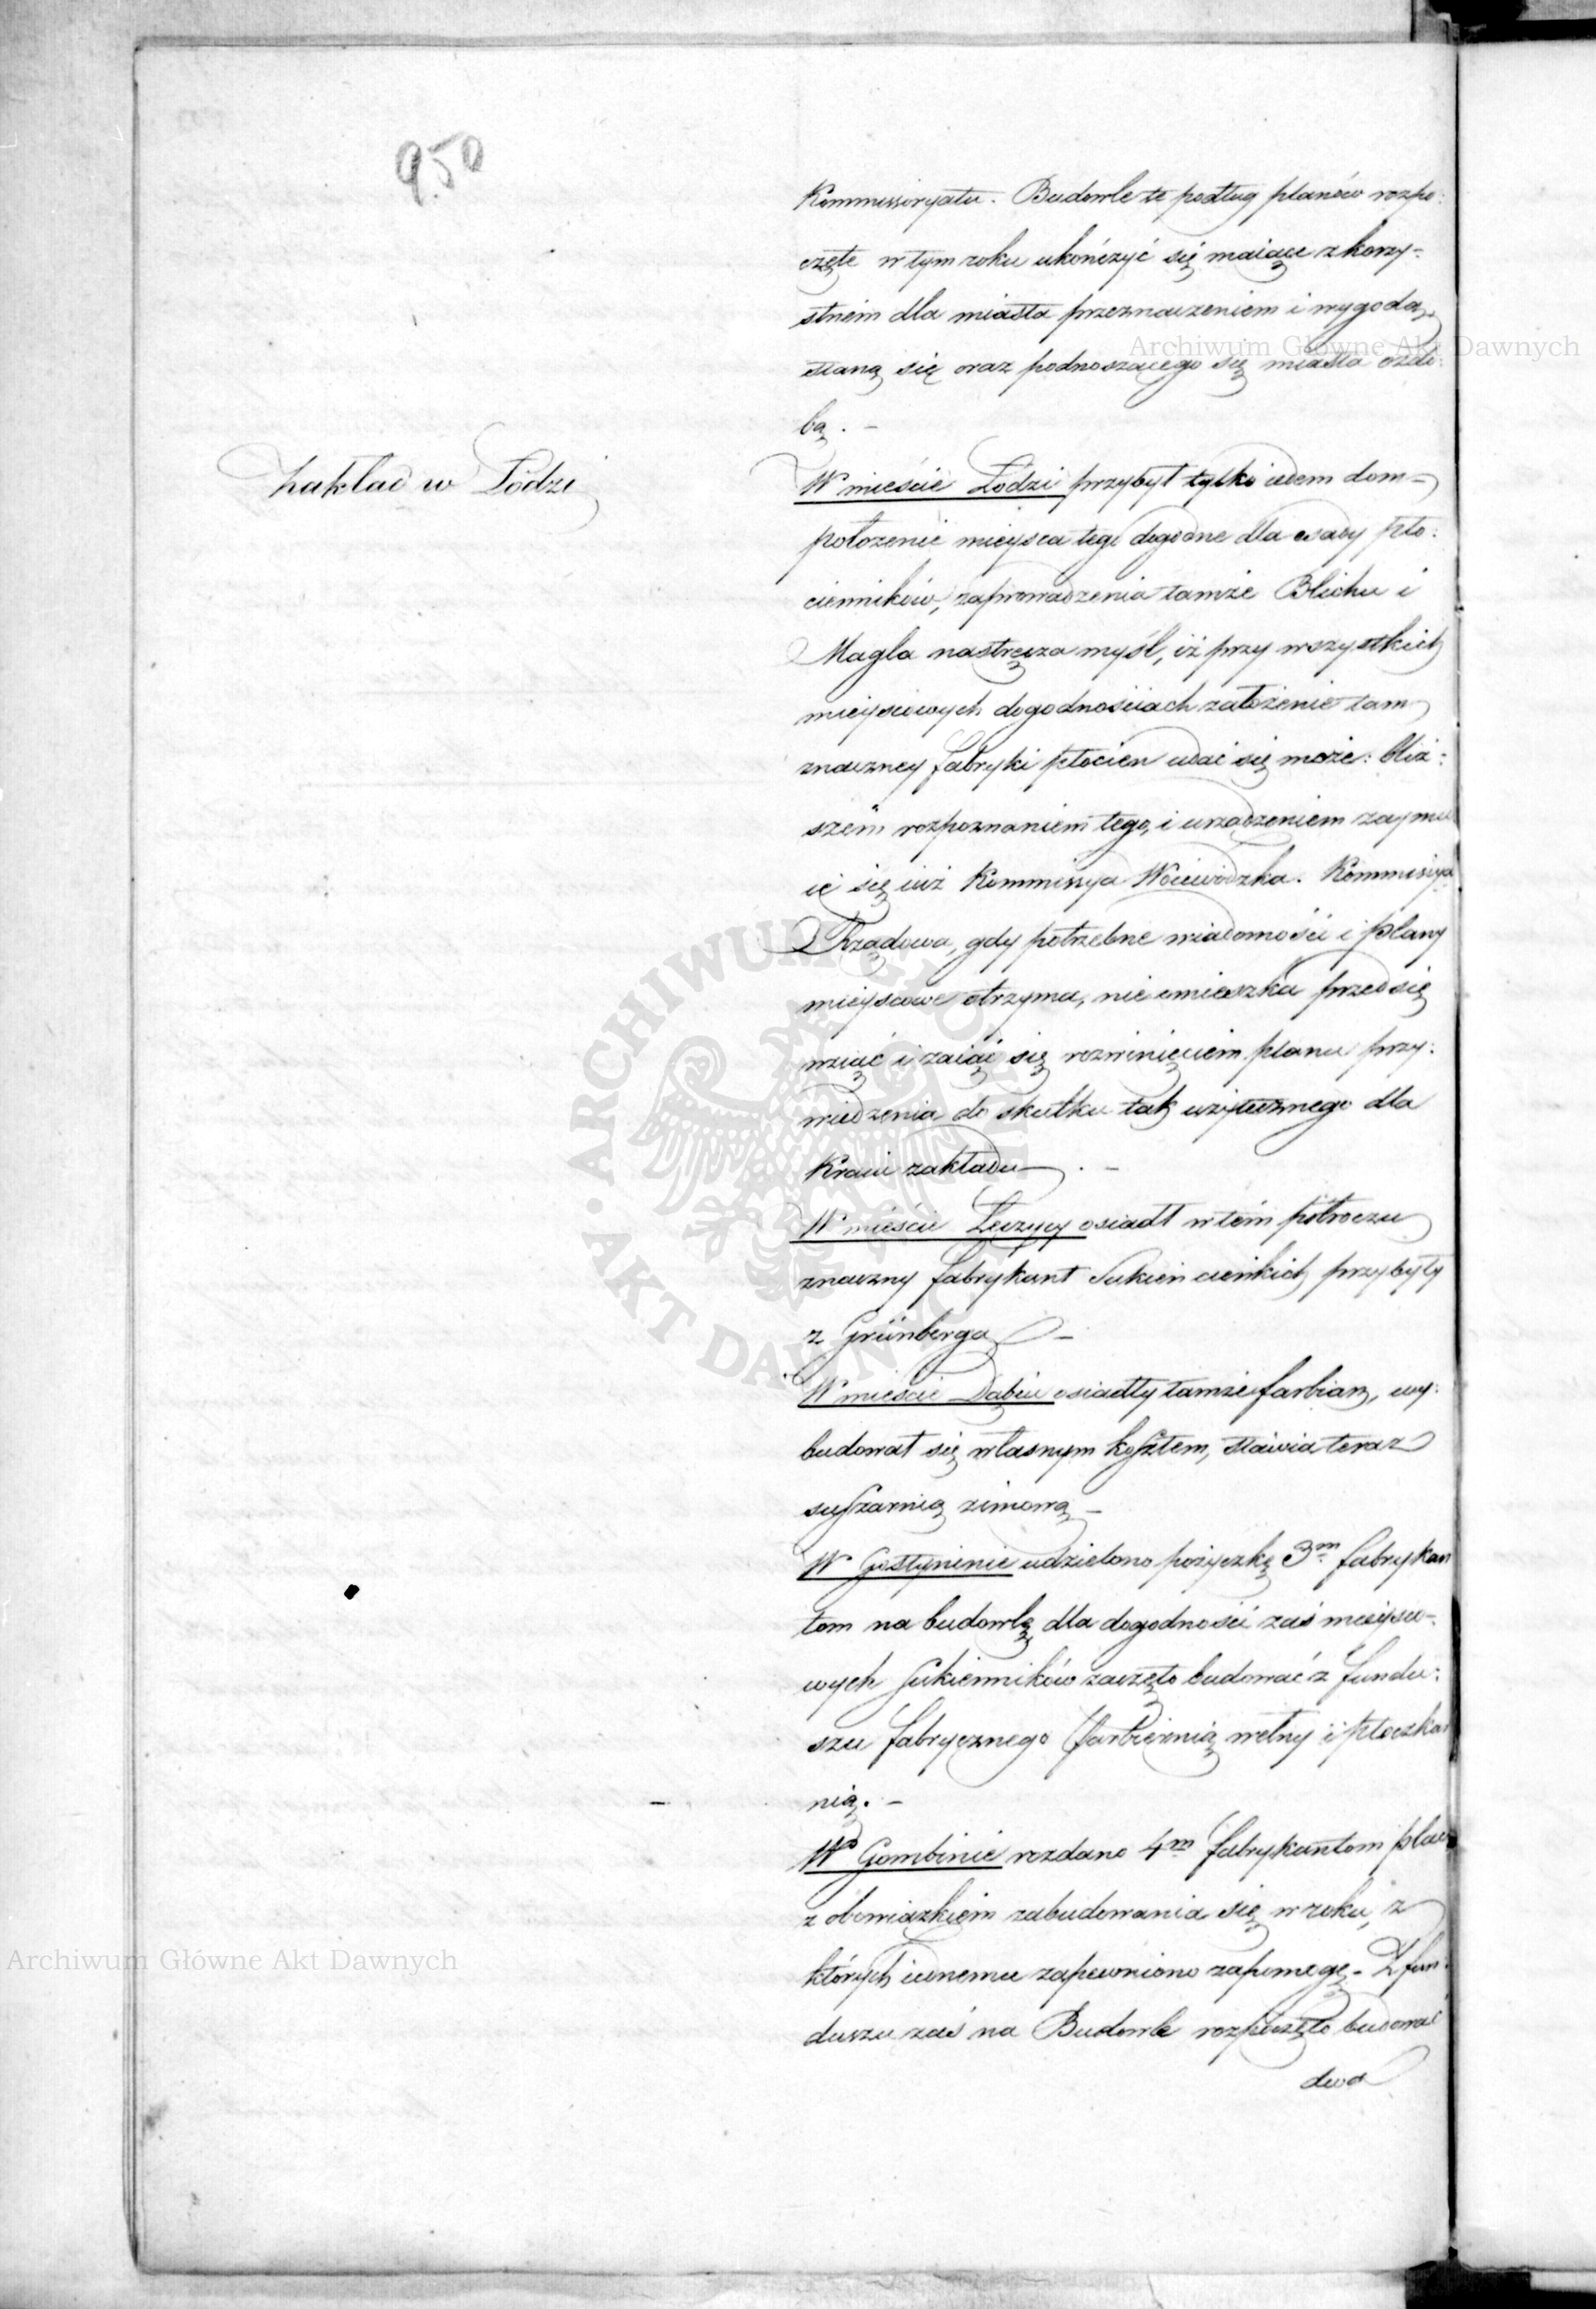 950
Kommissoryatu. Budowle te podług planów rozpo:
częte w tym roku ukończyć się maiące z korzy-
stném dla miasta przeznaczeniem i wygodą,
staną się oraz podnoszącego się miasta ozdo:
bą. –
Zakład w Łodzi
W mieście Łodzi przybył tylko ieden dom –
położenie mieysca tego dogodne dla osady płó:
cienników, zaprowadzenia tamże Blichu i
Magla nastręcza myśl, iż przy wszystkich
mieyscowych dogodnościach założenie tam
znaczney fabryki płócien udać się może: bliż:
szém rozpoznaniem tego, i urządzeniem zaymu
ie się iuż Kommissya Woiewódzka. Kommissya
Rządowa, gdy potrzebne wiadomości i plany
mieyscowe otrzyma, nie omieszka przedsię
wziąć i zaiąć się rozwinięciem planu przy:
wiedzenia do skutku tak użytecznego dla
Kraiu zakładu. –
W mieście Łęczycy osiadł w tém półroczu
znaczny fabrykant Sukien cienkich przybyły
z Grünberga –
W mieście Dąbiu osiadły tamże farbiarz, wy:
budował się własnym kosztem, stawia teraz
suszarnią zimową –
W Gostyninie udzielono pożyczkę 3m fabrykan
tom na budowlę, dla dogodności zaś mieysco-
wych Sukienników zaczęto budować z fundu:
szu fabrycznego farbiernią wełny i płóczkar
nią. –
W Gombinie rozdano 4m fabrykantom place
z obowiązkiem zabudowania się w roku, z
których iednemu zapewniono zapomogę – Z fun:
duszu zaś na Budowle rozpoczęto budować
dwa
Archiwum Główne Akt Dawnych
Archiwum Główne Akt Dawnych
ARCHIWUM GŁÓWNE AKT DAWNYCH